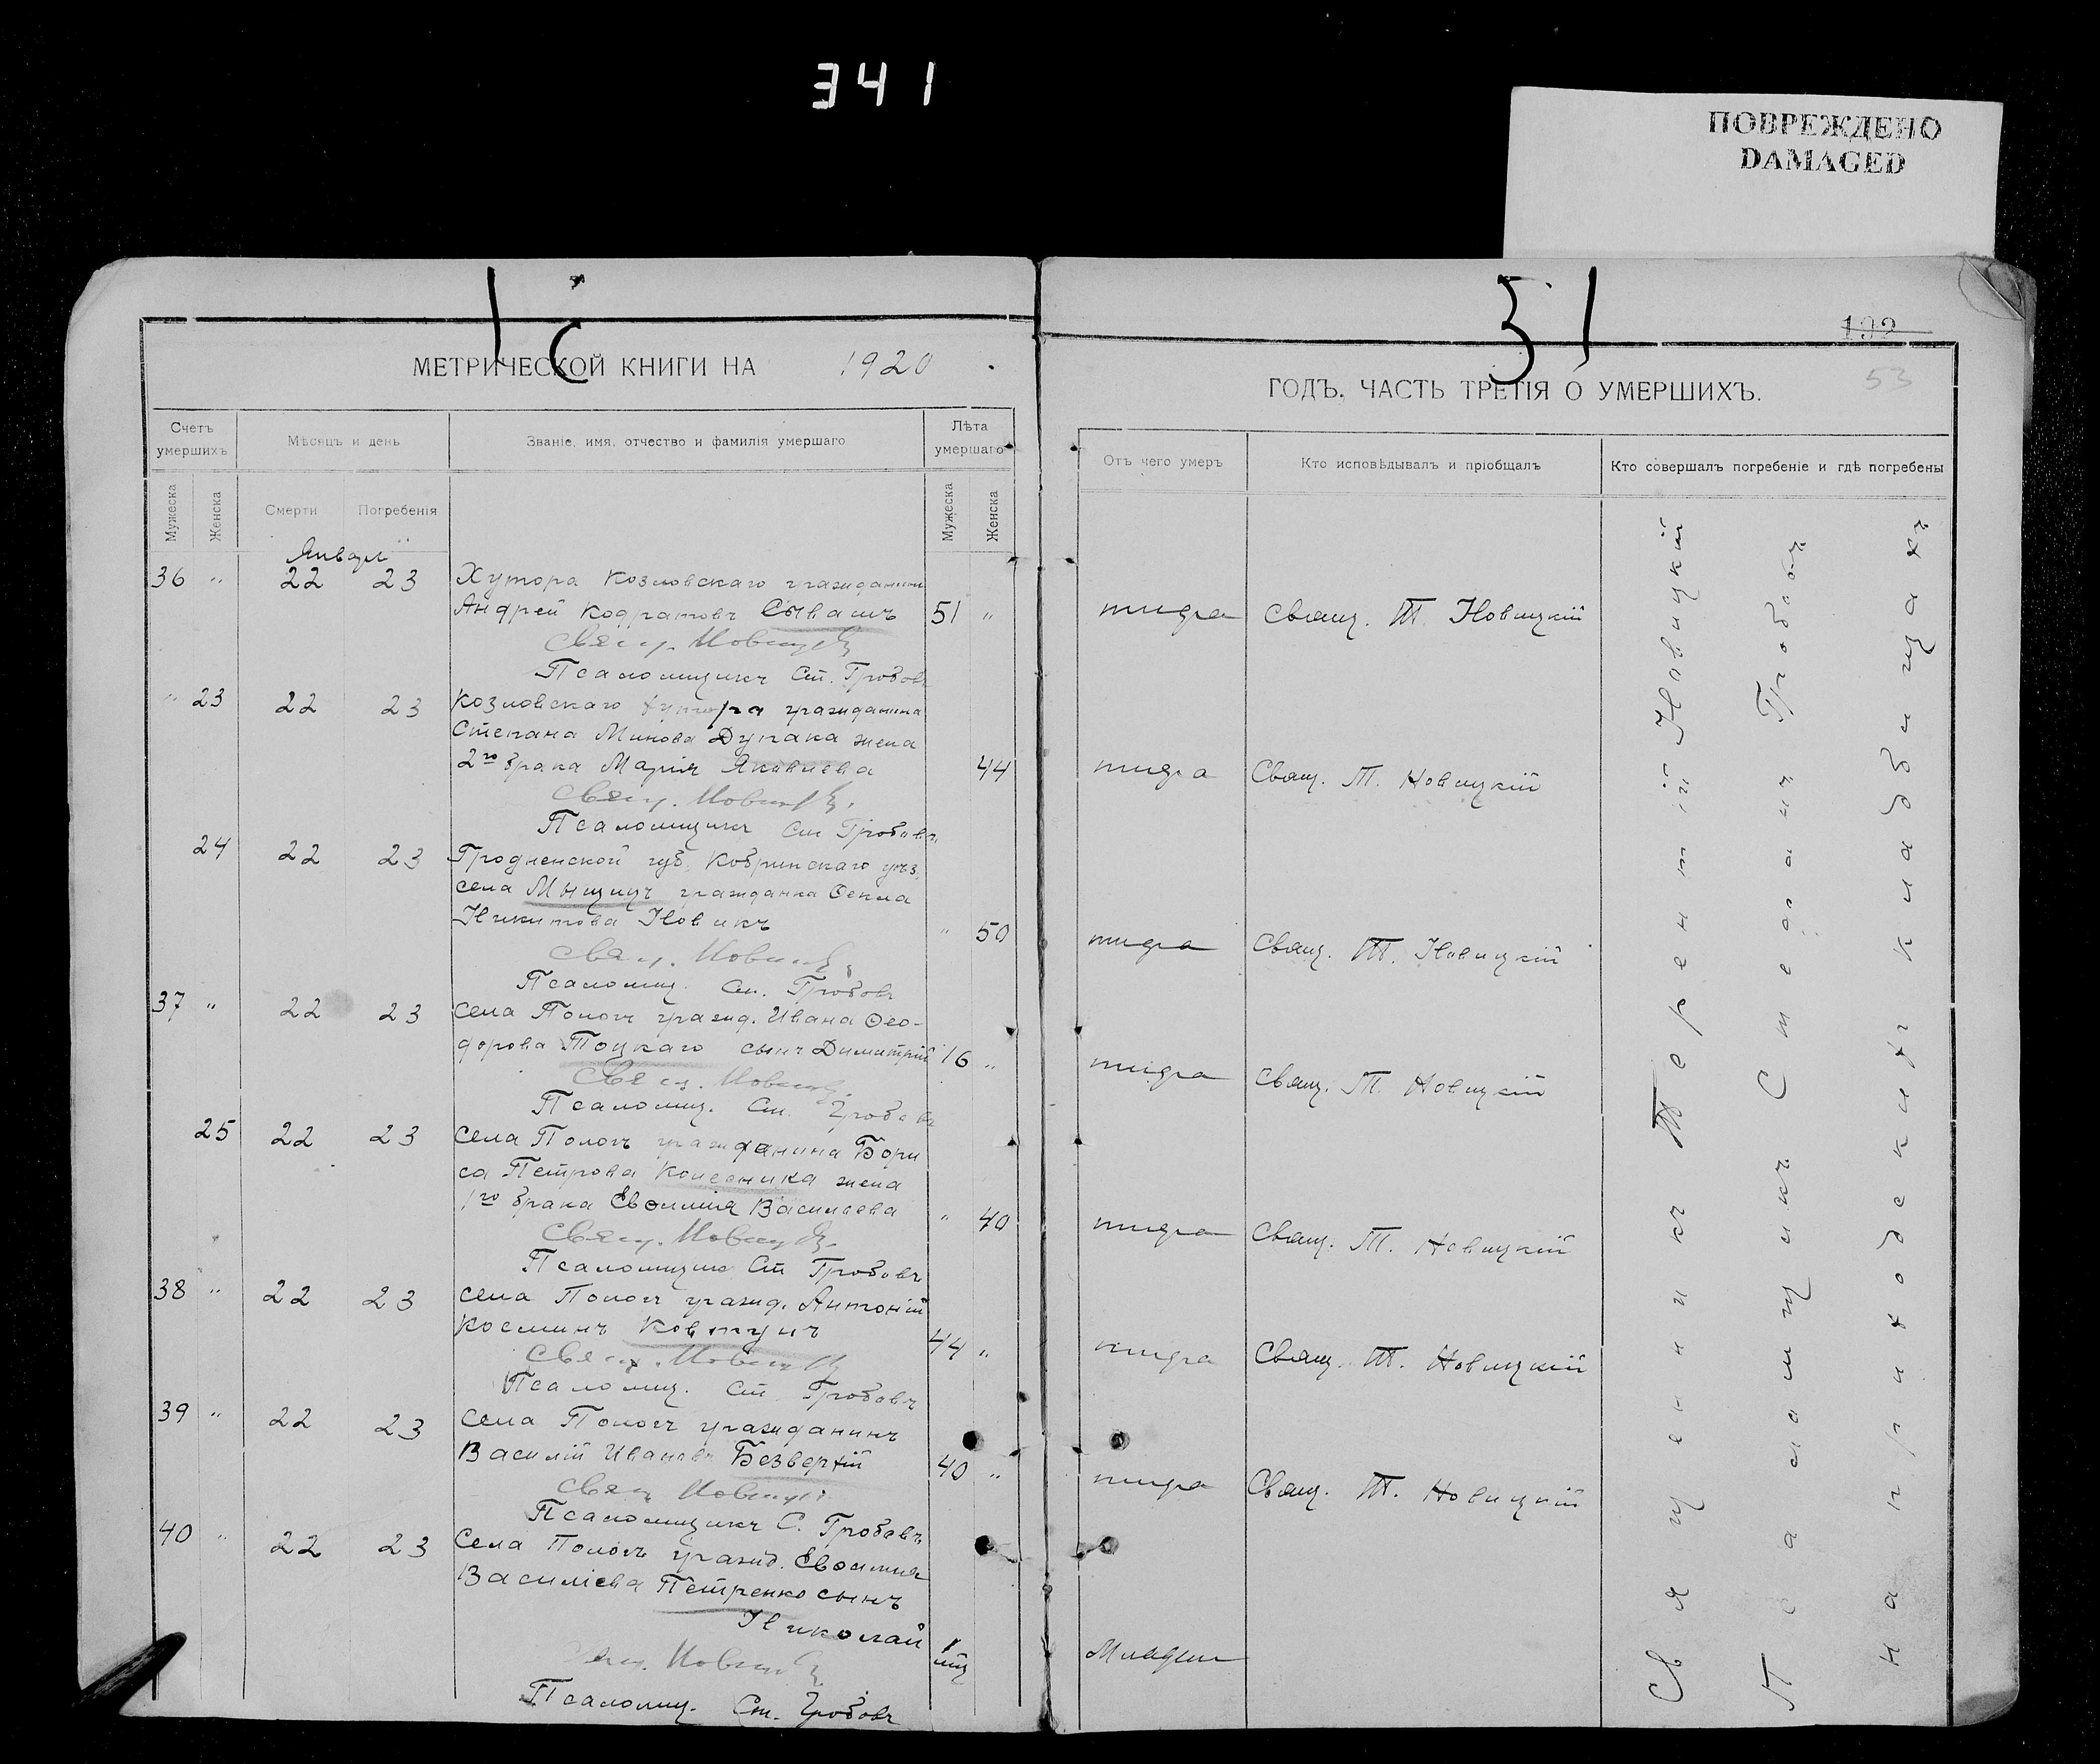 341
ПОВРЕЖДЕНО
DAMAGED
51
192
53
МЕТРИЧЕСКОЙ КНИГИ НА 1920
ГОДЪ. ЧАСТЬ ТРЕТІЯ О УМЕРШИХЪ.
Счетъ умершихъ
Мѣсяцъ и день
Званіе, имя, отчество и фамилія умершаго
Лѣта умершаго
Отъ чего умеръ
Кто исповѣдывалъ и пріобщалъ
Кто совершалъ погребеніе и гдѣ погребены
Мужеска
Женска
Смерти
Погребенія
Мужеска
Женска
Январь
36 " 22 23 Хутора Козловскаго гражданинъ
Андрей Кодратовъ Сывашъ 51 " тифа Свящ. Т. Новицкій
Свящ. Новицкій
Псаломщикъ Ст. Гробовъ
" 23 22 23 Козловскаго хутора гражданина
Степана Минова Дупака жена
2го брака Марія Яковлева 44 тифа Свящ. Т. Новицкій
Свящ. Новицкій
Псаломщикъ Ст. Гробовъ
24 22 23 Гродненской губ. Кобринскаго уѣз.
села Мыщицъ гражданка Ѳекла
Никитова Новикъ " 50 тифа Свящ. Т. Новицкій
Свящ. Новицкій
Псаломщ. Ст. Гробовъ
37 " 22 23 Села Пологъ гражд. Ивана Ѳео-
дорова Тоцкаго сынъ Димитрій 16 " тифа Свящ. Т. Новицкій
Свящ. Новицкій
Псаломщ. Ст. Гробовъ
25 22 23 Села Пологъ гражданина Бори
са Петрова Колесника жена
1го брака Евѳимія Васильева " 40 тифа Свящ. Т. Новицкій
Свящ. Новицкій
Псаломщикъ Ст. Гробовъ
38 " 22 23 Села Пологъ гражд. Антоній
Косминъ Ковтунъ 44 " тифа Свящ. Т. Новицкій
Свящ. Новицкій
Псаломщ. Ст. Гробовъ
39 " 22 23 Села Пологъ гражданинъ
Василій Ивановъ Безверхій 40 " тифа Свящ. Т. Новицкій
Свящ. Новицкій
Псаломщикъ С. Гробовъ
40 " 22 23 Села Пологъ гражд. Евѳимія
Василіева Петренко сынъ
Николай 1 мц Младен
Свящ. Новицкій
Псаломщ. Ст. Гробовъ
Священникъ Терентій Новицкій
Псаломщикъ Стефанъ Гробовъ
На приходскихъ кладбищахъ